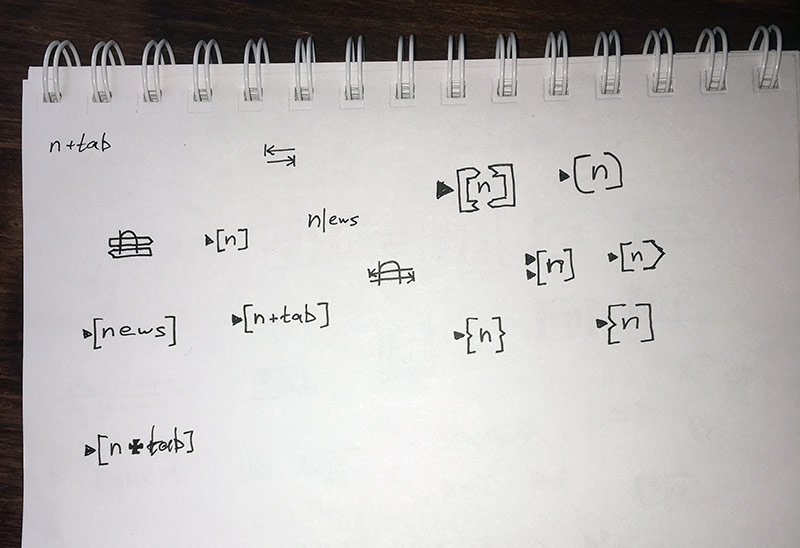 n+tab
▶[[n]]
▶(n)
n|ews
▶[n]
▶[n]
▶[n}
▶[news]
▶[n+tab]
▶{n}
▶{n]
▶[n+tab]